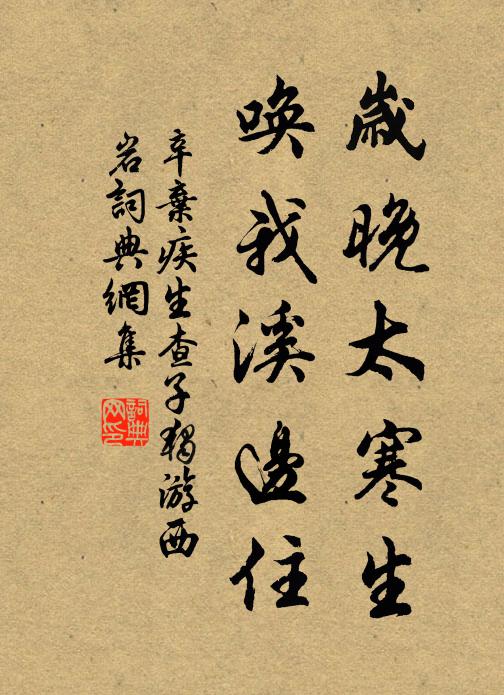 歲晚太寒生
喚我溪邊住
辛棄疾生查子獨游西
岩詞典網集
詞典网印